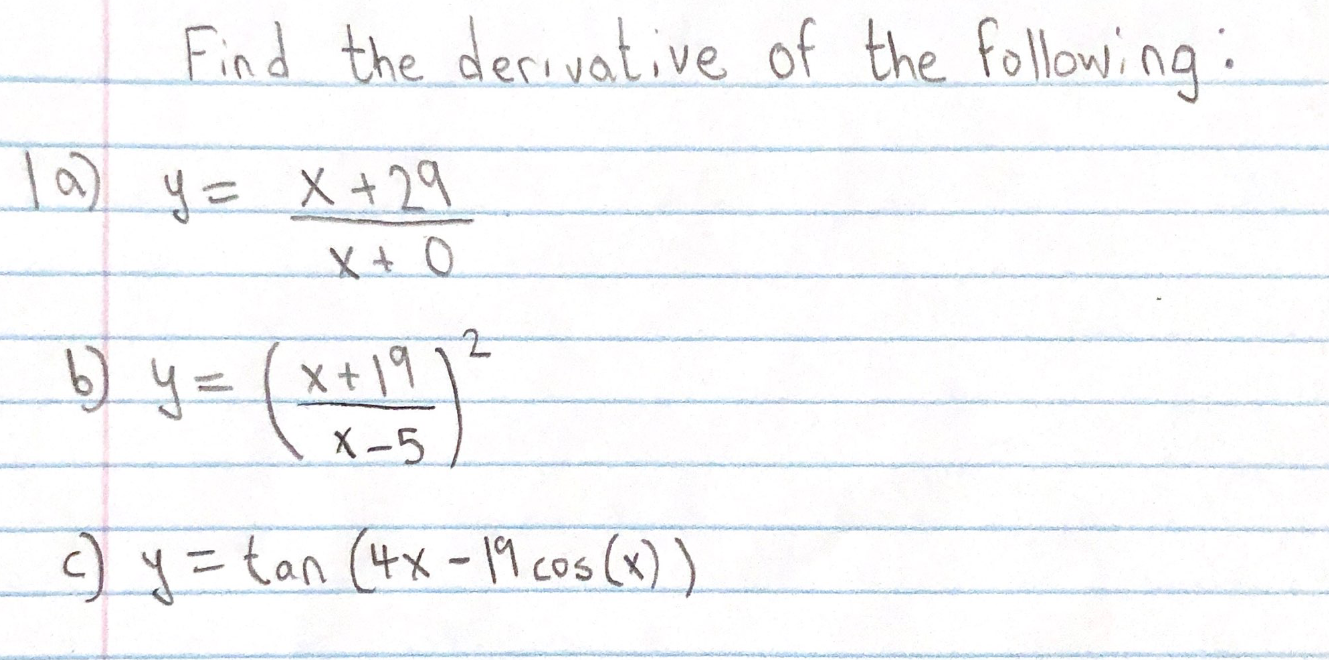 Find the derivative of the following:
1a) y = x + 29
x + 0
b) y = (x + 19)²
x - 5
c) y = tan (4x - 19 cos(x))